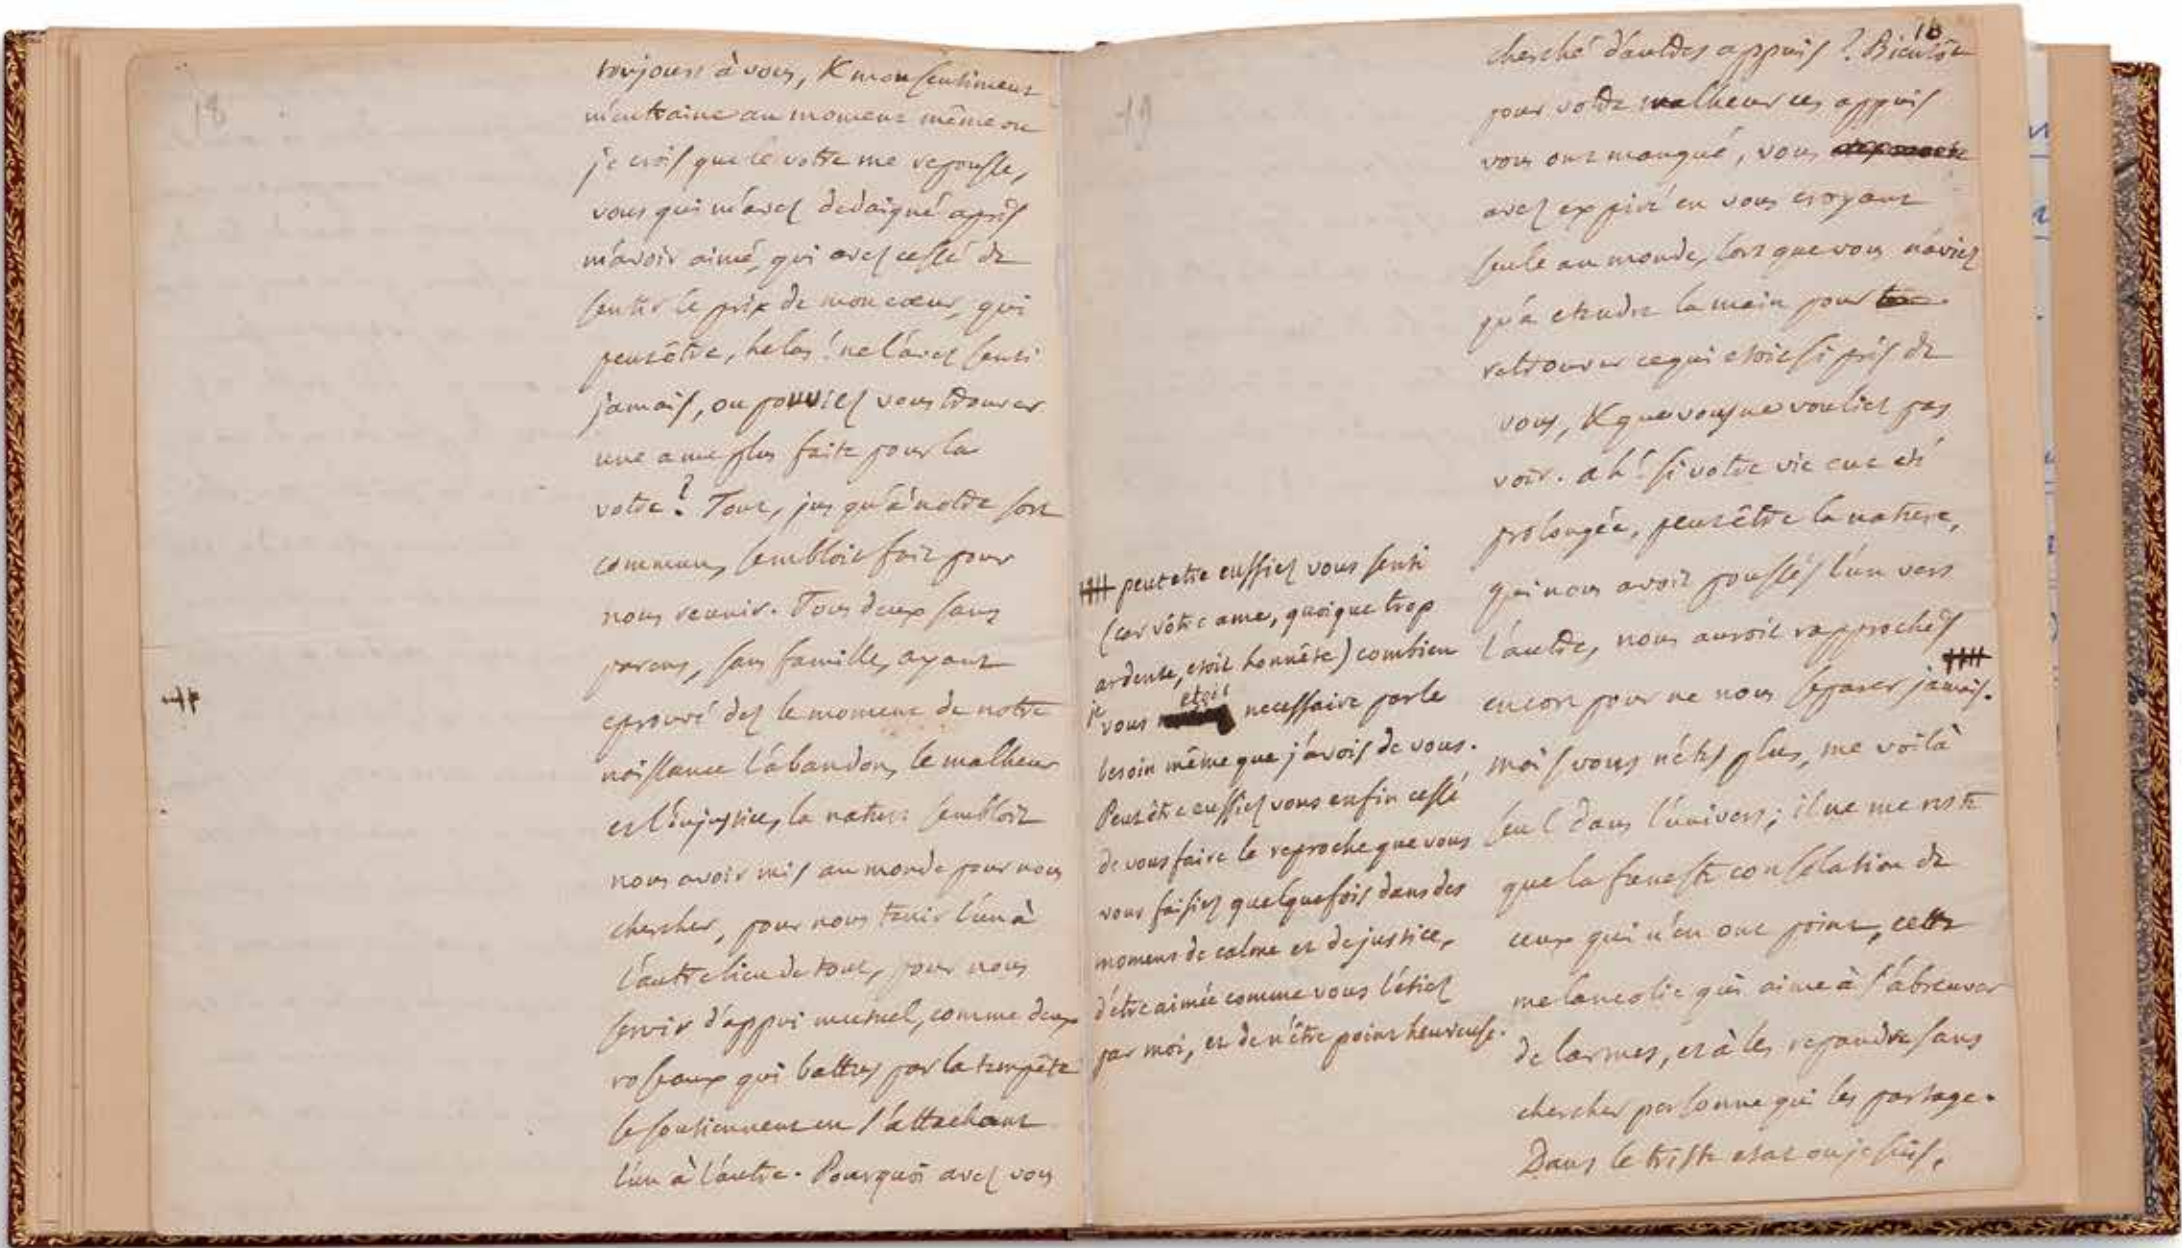 18
toujours à vous, & mon sentiment
m'entraine au moment même ou
je crois que le votre me repousse,
vous qui m'avez dedaigné après
m'avoir aimé, qui avez cessé de
sentir le prix de mon cœur, qui
peutêtre, helas! ne l'avez senti
jamais, ou pouviez vous trouver
une ame plus faite pour la
votre? Tout, jusqu'à notre sort
commun, sembloit fait pour
nous reunir. Tous deux sans
parens, sans famille, ayant
eprouvé dez le moment de notre
naissance l'abandon, le malheur
et l'injustice, la nature sembloit
nous avoir mis au monde pour nous
chercher, pour nous tenir l'un à
l'autre lieu de tout, pour nous
servir d'appui mutuel, comme deux
roseaux qui battus par la tempête
se soutiennent en s'attachant
l'un à l'autre. Pourquoi avez vous
19
peutetre eussiez vous senti
(car vôtre ame, quoique trop
ardente, etoit honnête) combien
je vous etois necessaire par le
besoin même que j'avois de vous.
Peutêtre eussiez vous enfin cessé
de vous faire le reproche que vous
vous faisiez quelquefois dans des
momens de calme et de justice,
d'etre aimée comme vous l'étiez
par moi, et de n'être point heureuse.
16
cherché d'autres appuis? Bientôt
pour votre malheur ces appuis
vous ont manqué, vous
avez expiré en vous croyant
seule au monde, lorsque vous n'aviez
qu'à etendre la main pour
retrouver ce qui etoit si près de
vous, & que vous ne vouliez pas
voir. ah! si votre vie eut eté
prolongée, peutêtre la nature,
qui nous avoit poussés l'un vers
l'autre, nous auroit rapprochés
encore pour ne nous separer jamais.
mais vous n'êtes plus, me voilà
seul dans l'univers; il ne me reste
que la funeste consolation de
ceux qui n'en ont point, cette
melancolie qui aime à s'abreuver
de larmes, et à les repandre sans
chercher personne qui les partage.
Dans le triste etat ou je suis,